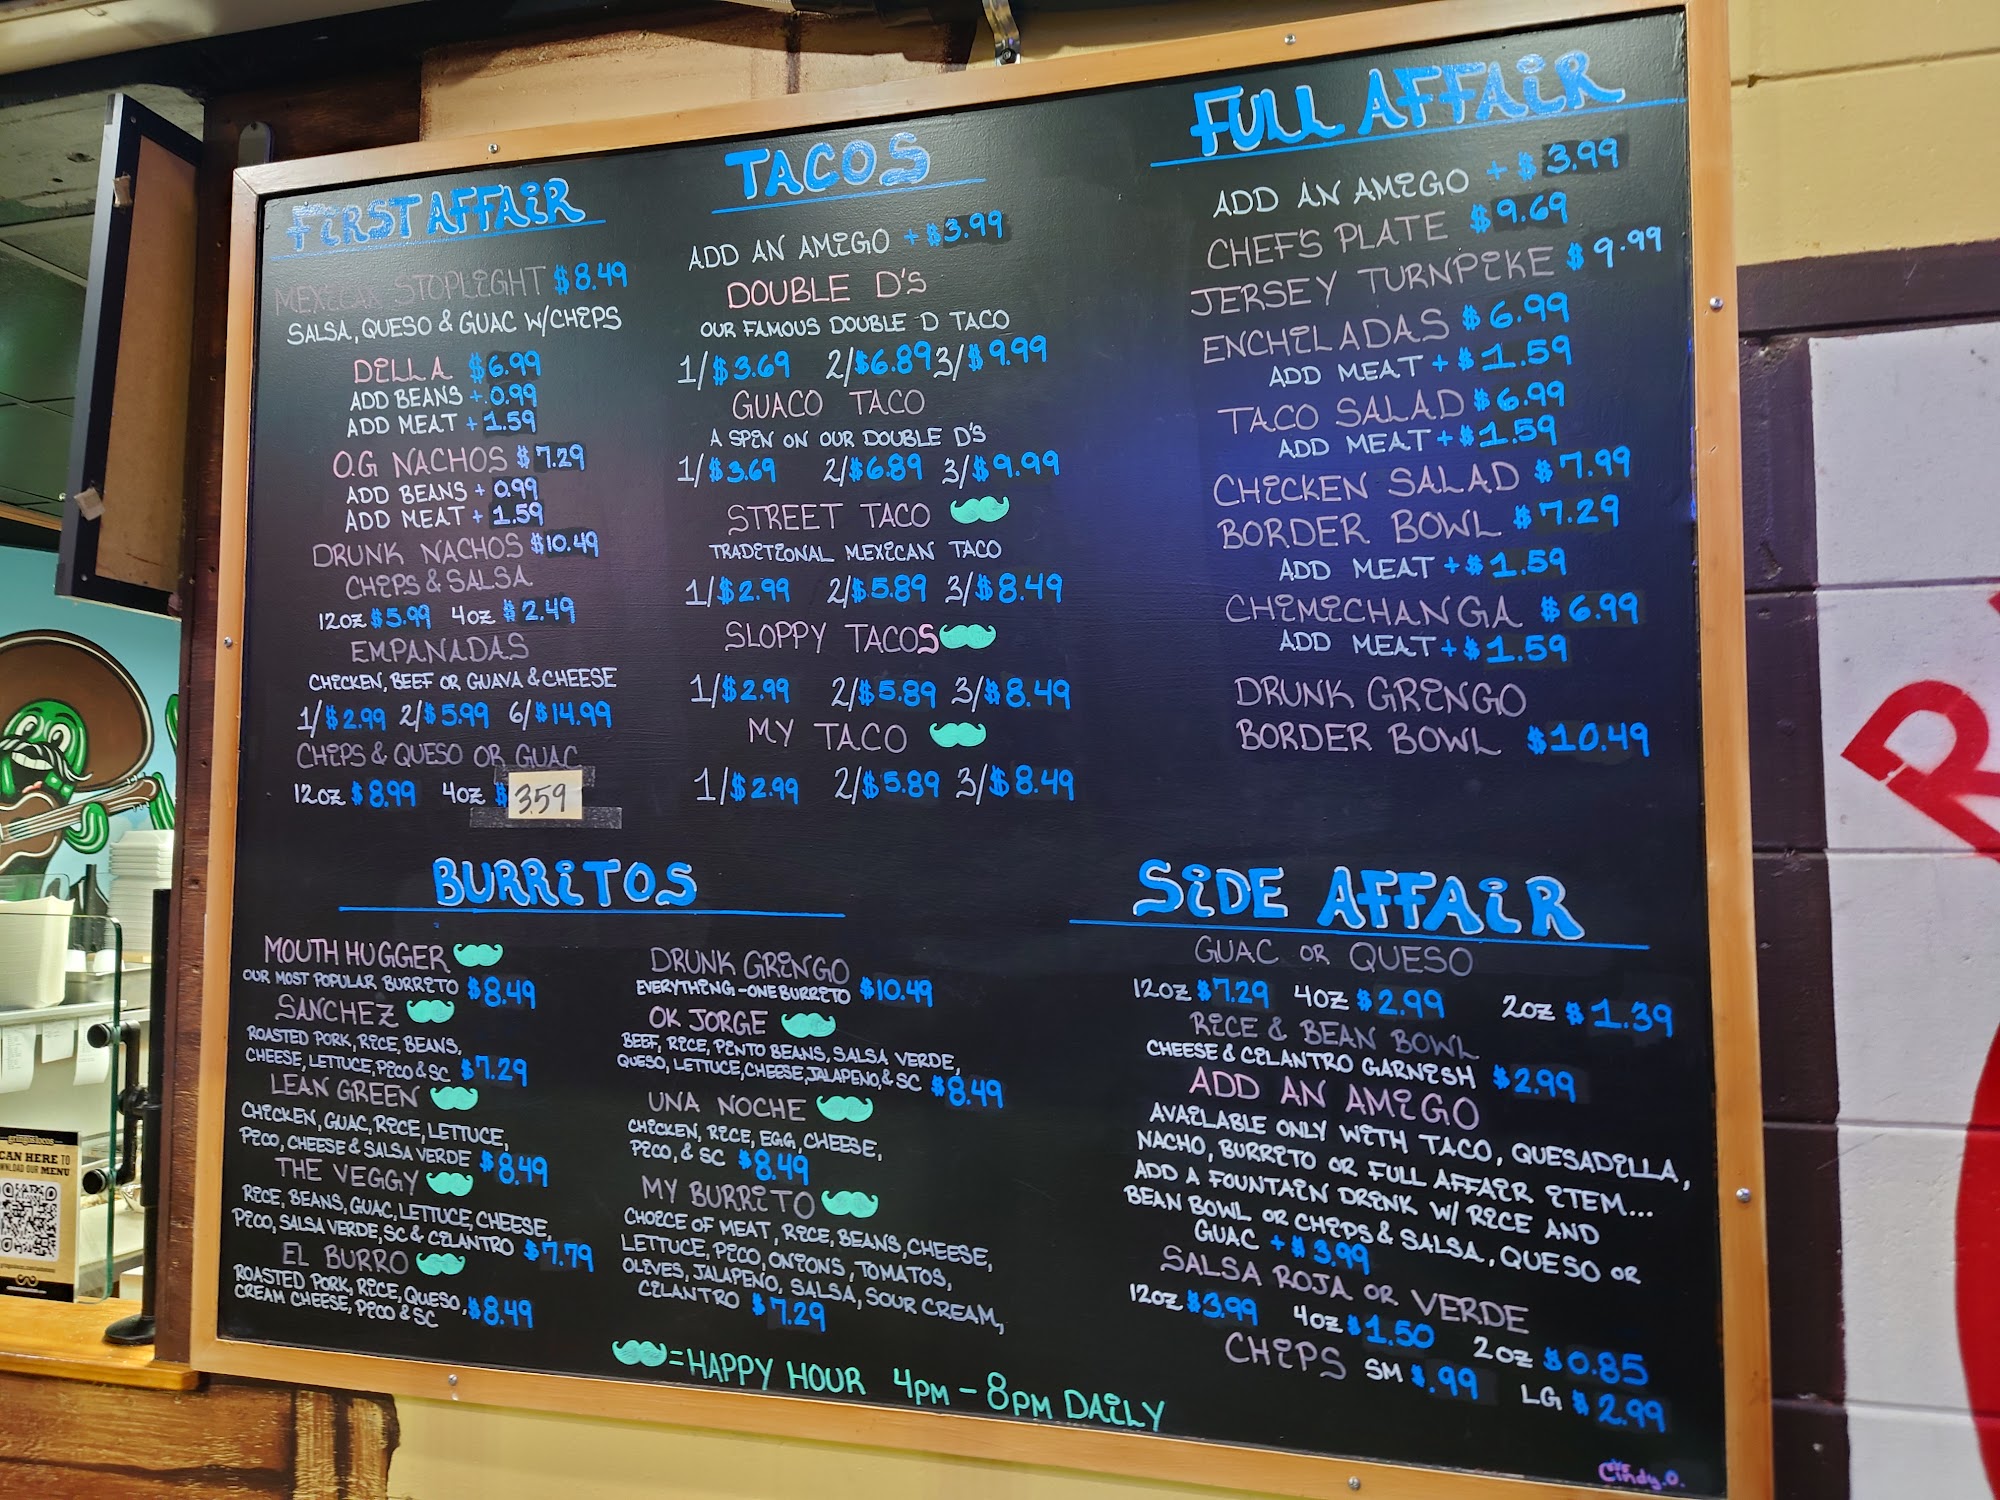 FIRST AFFAIR
MEXICAN STOPLIGHT $8.49
SALSA, QUESO & GUAC W/CHIPS
DILLA $6.99
ADD BEANS + 0.99
ADD MEAT + 1.59
O.G NACHOS $7.29
ADD BEANS + 0.99
ADD MEAT + 1.59
DRUNK NACHOS $10.49
CHIPS & SALSA
12oz $5.99 4oz $2.49
EMPANADAS
CHICKEN, BEEF OR GUAVA & CHEESE
1/$2.99 2/$5.99 6/$14.99
CHIPS & QUESO OR GUAC
12oz $8.99 4oz $3.59
TACOS
ADD AN AMIGO + $3.99
DOUBLE D'S
OUR FAMOUS DOUBLE D TACO
1/$3.69 2/$6.89 3/$9.99
GUACO TACO
A SPIN ON OUR DOUBLE D'S
1/$3.69 2/$6.89 3/$9.99
STREET TACO
TRADITIONAL MEXICAN TACO
1/$2.99 2/$5.89 3/$8.49
SLOPPY TACOS
1/$2.99 2/$5.89 3/$8.49
MY TACO
1/$2.99 2/$5.89 3/$8.49
FULL AFFAIR
ADD AN AMIGO + $3.99
CHEF'S PLATE $9.69
JERSEY TURNPIKE $9.99
ENCHILADAS $6.99
ADD MEAT + $1.59
TACO SALAD $6.99
ADD MEAT + $1.59
CHICKEN SALAD $7.99
BORDER BOWL $7.29
ADD MEAT + $1.59
CHIMICHANGA $6.99
ADD MEAT + $1.59
DRUNK GRINGO
BORDER BOWL $10.49
BURRITOS
MOUTH HUGGER
OUR MOST POPULAR BURRITO $8.49
SANCHEZ
ROASTED PORK, RICE, BEANS,
CHEESE, LETTUCE, PICO & SC $7.29
LEAN GREEN
CHICKEN, GUAC, RICE, LETTUCE,
PICO, CHEESE & SALSA VERDE $8.49
THE VEGGY
RICE, BEANS, GUAC, LETTUCE, CHEESE,
PICO, SALSA VERDE, SC & CILANTRO $7.79
EL BURRO
ROASTED PORK, RICE, QUESO,
CREAM CHEESE, PICO & SC $8.49
DRUNK GRINGO
EVERYTHING-ONE BURRITO $10.49
OK JORGE
BEEF, RICE, PINTO BEANS, SALSA VERDE,
QUESO, LETTUCE, CHEESE, JALAPENO, & SC $8.49
UNA NOCHE
CHICKEN, RICE, EGG, CHEESE,
PICO, & SC $8.49
MY BURRITO
CHOICE OF MEAT, RICE, BEANS, CHEESE,
LETTUCE, PICO, ONIONS, TOMATOS,
OLIVES, JALAPENO, SALSA, SOUR CREAM,
CILANTRO $7.29
=HAPPY HOUR 4PM - 8PM DAILY
SIDE AFFAIR
GUAC OR QUESO
12oz $7.29 4oz $2.99 2oz $1.39
RICE & BEAN BOWL
CHEESE & CILANTRO GARNISH $2.99
ADD AN AMIGO
AVAILABLE ONLY WITH TACO, QUESADILLA,
NACHO, BURRITO OR FULL AFFAIR ITEM...
ADD A FOUNTAIN DRINK W/ RICE AND
BEAN BOWL OR CHIPS & SALSA, QUESO OR
GUAC + $3.99
SALSA ROJA OR VERDE
12oz $3.99 4oz $1.50 2oz $0.85
CHIPS SM $.99 LG $2.99
Cindy.O.
gringoslocos
CAN HERE TO
WNLOAD OUR MENU
R